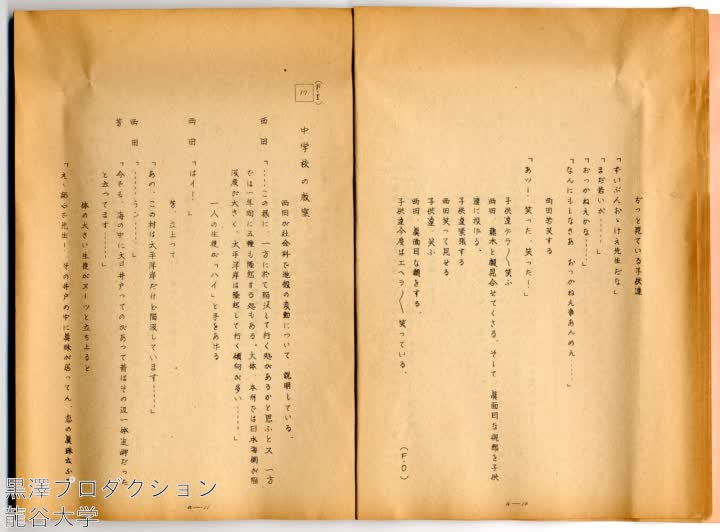 ぢっと見ている子供達
「ずいぶんおっけえ先生だな」
「まだ若いが……」
「おっかねえかな……」
「なんにもしなきあ おっかねえ事あんめえ……」
西田苦笑する
「あッー、笑った、笑った！」
子供達ゲラ〱笑ふ
西田、藤木と顔見合せてくさる、そして、眞面目な視線を子供
達に投げる。
子供達緊張する
西田笑って見せる
子供達、笑ふ
西田、眞面目な顔をする。
子供達今度はエヘラ〱笑っている。
(F・O)
a—10
(F・I)
17
中学校の教室
西田が社会科で地殻の変動について、説明している。
西田「……この様に、一方に於て陥没して行く処があるかと思ふと又 一方
では一年間に五糎も隆起する処もある。大体、本州では日本海側が陥
没度が大きく、太平洋岸は隆起して行く傾向が多い……」
一人の生徒が「ハイ」と手をあげる
西田「はイ！」
芳、立上って
「あの、この村は太平洋岸だけど陥没しています……」
西田「……ウン……」
芳「今でも、海の中に大日井戸ってのがあって昔はその辺一体庄御だった
と立ってます……」
体の大きい生徒がヌーッと立ち上ると
「えゝ語で先生！、その井戸の中に眞珠が居ってん、恋の眞珠ふ。
a—11
黒澤プロダクション
龍谷大学